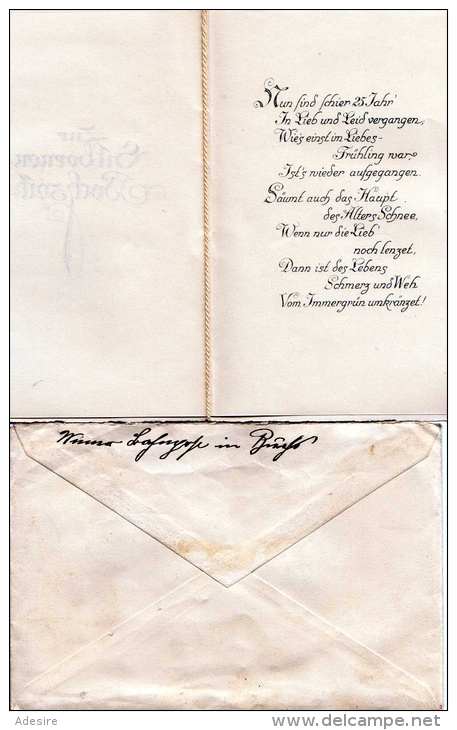 Zur
Silbernen
Hochzeit
Nun sind schier 25 Jahr'
In Lieb und Leid vergangen,
Wie's einst im Liebes-
Frühling war
Ist's wieder aufgegangen.
Säumt auch das Haupt
des Alters Schnee,
Wenn nur die Lieb'
noch lenzet,
Dann ist des Lebens
Schmerz und Weh
Vom Immergrün umkränzet!
in
Adesire
http://www.delcampe.net